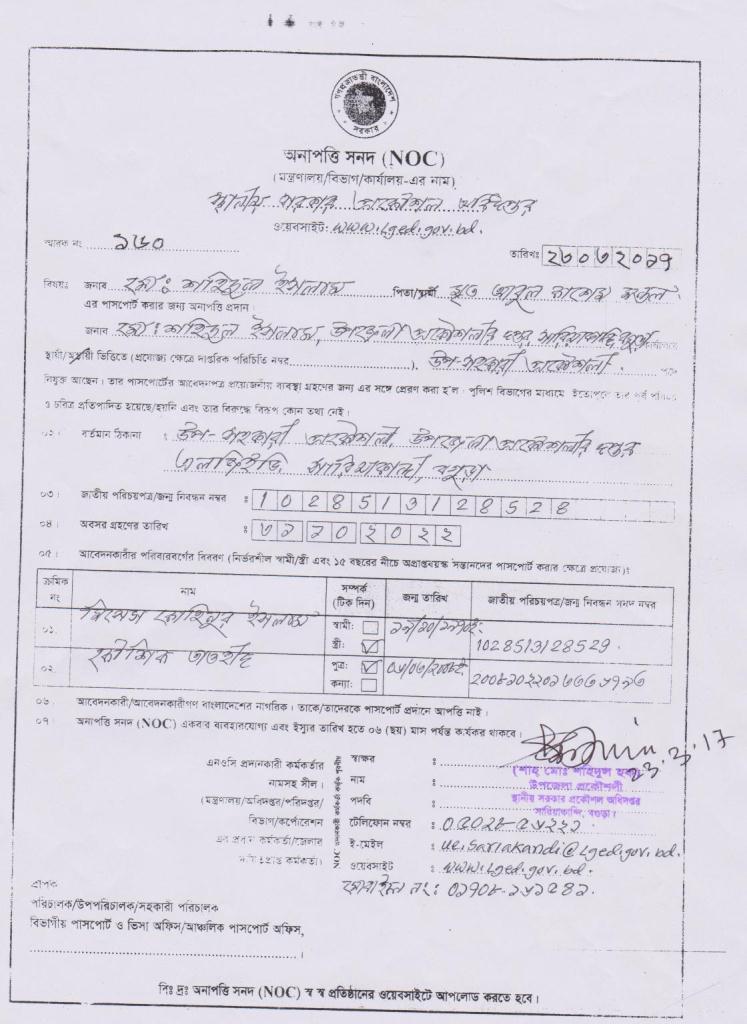 গণপ্রজাতন্ত্রী বাংলাদেশ
সরকার
অনাপত্তি সনদ (NOC)
(মন্ত্রণালয়/বিভাগ/কার্যালয়-এর নাম)
স্থানীয় সরকার প্রকৌশল অধিদপ্তর
ওয়েবসাইট: www.lged.gov.bd.
স্মারক নং ১৬০
তারিখঃ ২৩০৩২০১৭
বিষয়ঃ জনাব মোঃ শহিদুল ইসলাম পিতা/স্বামী মৃত আবুল কাশেম মন্ডল
এর পাসপোর্ট করার জন্য অনাপত্তি প্রদান।
জনাব মোঃ শহিদুল ইসলাম, উপজেলা প্রকৌশলীর দপ্তর সারিয়াকান্দি বগুড়া
স্থায়ী/অস্থায়ী ভিত্তিতে (প্রযোজ্য ক্ষেত্রে দাপ্তরিক পরিচিতি নম্বর ), উপ-সহকারী প্রকৌশলী পদে
নিযুক্ত আছেন। তার পাসপোর্টের আবেদনপত্র প্রয়োজনীয় ব্যবস্থা গ্রহণের জন্য এর সঙ্গে প্রেরণ করা হ'ল। পুলিশ বিভাগের মাধ্যমে ইতোপূর্বে তার পূর্ব
ও চরিত্র প্রতিপাদিত হয়েছে/হয়নি এবং তার বিরুদ্ধে বিরূপ কোন তথ্য নেই।
০২। বর্তমান ঠিকানা : উপ-সহকারী প্রকৌশলী, উপজেলা প্রকৌশলীর দপ্তর
এলজিইডি, সারিয়াকান্দি, বগুড়া
০৩। জাতীয় পরিচয়পত্র/জন্ম নিবন্ধন নম্বর : 1028513128528
০৪। অবসর গ্রহণের তারিখ : ৩১১০২০২২
০৫। আবেদনকারীর পরিবারবর্গের বিবরণ (নির্ভরশীল স্বামী/স্ত্রী এবং ১৫ বছরের নীচে অপ্রাপ্তবয়স্ক সন্তানদের পাসপোর্ট করার ক্ষেত্রে প্রযোজ্য):
ক্রমিক নং নাম সম্পর্ক (টিক দিন) জন্ম তারিখ জাতীয় পরিচয়পত্র/জন্ম নিবন্ধন সনদ নম্বর
০১. মিসেস কোহিনুর ইসলাম স্বামী: স্ত্রী: 1028513128529.
০২. কৌশিক তাওহীদ পুত্র: কন্যা:
০৬। আবেদনকারী/আবেদনকারীগণ বাংলাদেশের নাগরিক। তাকে/তাদেরকে পাসপোর্ট প্রদানে আপত্তি নাই।
০৭। অনাপত্তি সনদ (NOC) একবার ব্যবহারযোগ্য এবং ইস্যুর তারিখ হতে ০৬ (ছয়) মাস পর্যন্ত কার্যকর থাকবে।
23.3.17
এনওসি প্রদানকারী কর্মকর্তার
নামসহ সীল।
(মন্ত্রণালয়/অধিদপ্তর/পরিদপ্তর/
বিভাগ/কর্পোরেশন
এর প্রধান কর্মকর্তা/জেলার
দায়িত্বপ্রাপ্ত কর্মকর্তা)
NOC প্রদানকারী কর্মকর্তা কর্তৃক পূরণীয়
স্বাক্ষর :
নাম : (শাহ্ মোঃ শহিদুল হক)
পদবি : উপজেলা প্রকৌশলী
স্থানীয় সরকার প্রকৌশল অধিদপ্তর
সারিয়াকান্দি, বগুড়া।
টেলিফোন নম্বর : ০৫০২৮-৫৬২২১
ই-মেইল : ue.sariakandi@lged.gov.bd.
ওয়েবসাইট : www.lged.gov.bd.
মোবাইল নং:
প্রাপক
পরিচালক/উপপরিচালক/সহকারী পরিচালক
বিভাগীয় পাসপোর্ট ও ভিসা অফিস/আঞ্চলিক পাসপোর্ট অফিস,
বিঃ দ্রঃ অনাপত্তি সনদ (NOC) স্ব স্ব প্রতিষ্ঠানের ওয়েবসাইটে আপলোড করতে হবে।